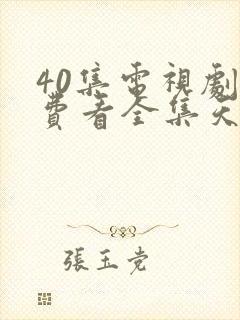 40集電視劇
費看全集天
張玉党